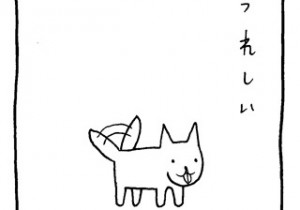 うれしい